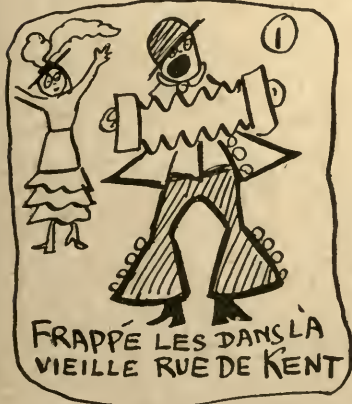 1
FRAPPÉ LES DANS LÀ
VIEILLE RUE DE KENT